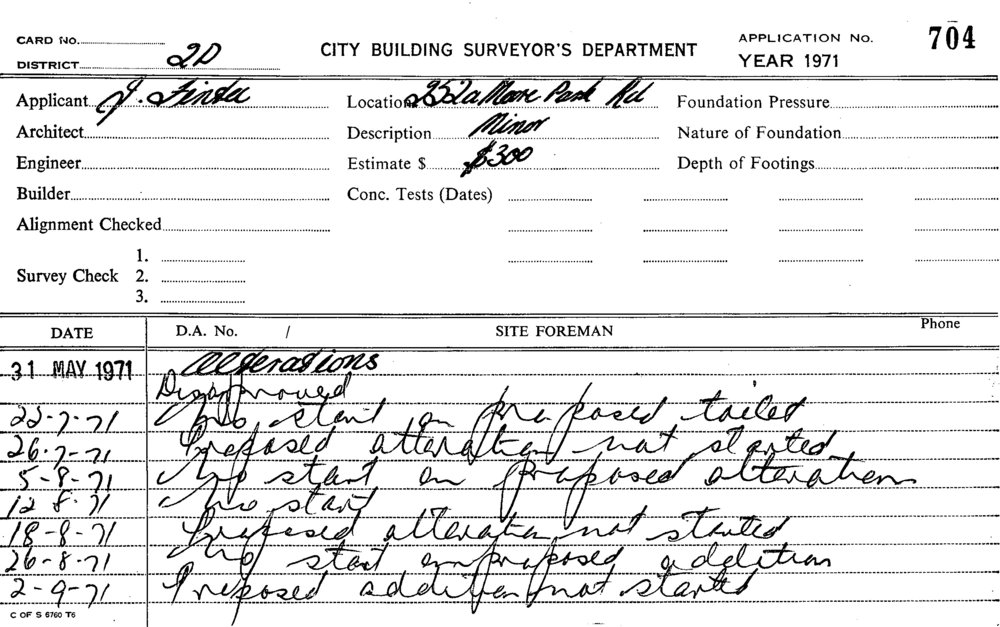 CARD No.
DISTRICT 2D
CITY BUILDING SURVEYOR'S DEPARTMENT
APPLICATION No. 704
YEAR 1971
Applicant J. Location 252a Moore Park Rd Foundation Pressure
Architect Description Minor Nature of Foundation
Engineer Estimate $ $300 Depth of Footings
Builder Conc. Tests (Dates)
Alignment Checked
1.
Survey Check 2.
3.
DATE D.A. No. / SITE FOREMAN Phone
31 MAY 1971 Alterations
Disapproved
22-7-71 No start on proposed toilet
26-7-71 Proposed alteration not started
5-8-71 No start on proposed alteration
12 8. 71 No start
18-8-71 Proposed alteration not started
26-8-71 No start on proposed addition
2-9-71 Proposed addition not started
C OF S 6760 T6